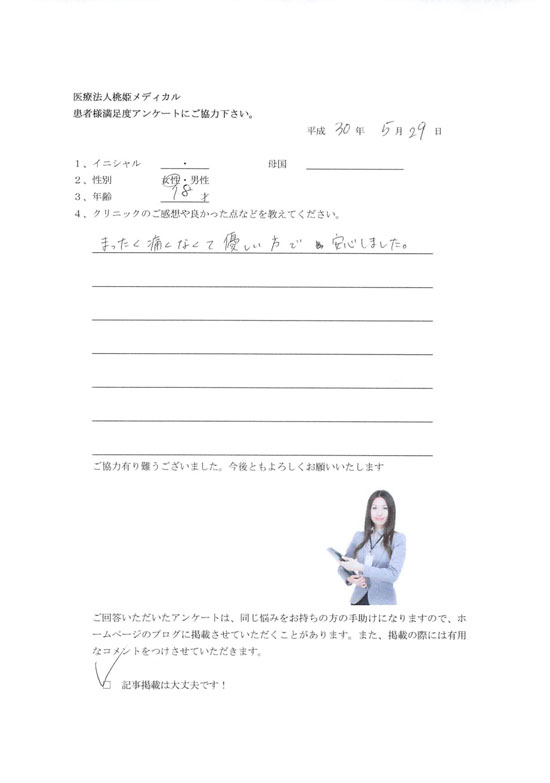 医療法人桃姫メディカル
患者様満足度アンケートにご協力下さい。
平成 30 年 5 月 29 日
1、イニシャル ・ 母国
2、性別 女性・男性
3、年齢 18 才
4、クリニックのご感想や良かった点などを教えてください。
まったく痛くなくて優しい方で安心しました。
ご協力有り難うございました。今後ともよろしくお願いいたします
ご回答いただいたアンケートは、同じ悩みをお持ちの方の手助けになりますので、ホ
ームページのブログに掲載させていただくことがあります。また、掲載の際には有用
なコメントをつけさせていただきます。
□ 記事掲載は大丈夫です！